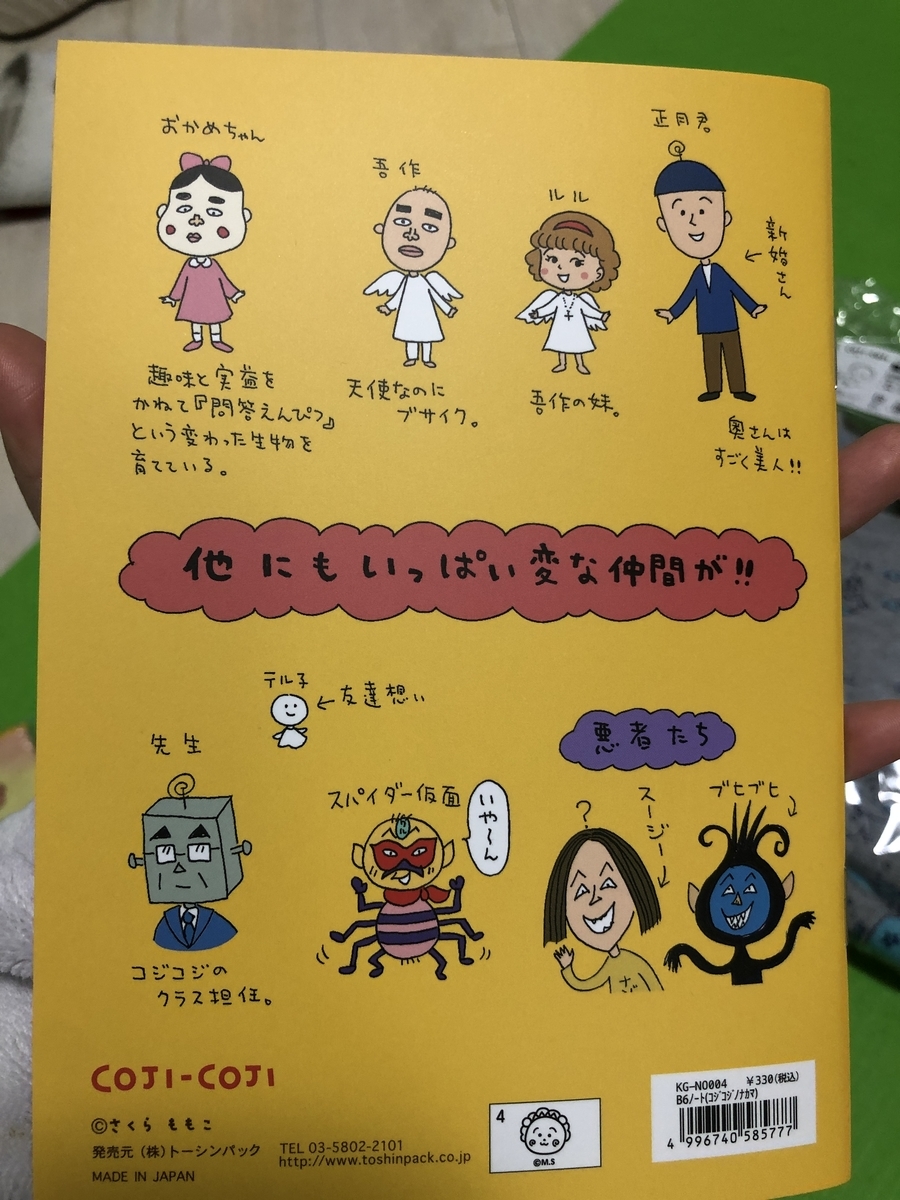 おかめちゃん
趣味と実益を
かねて『問答えんぴつ』
という変わった生物を
育てている。
吾作
天使なのに
ブサイク。
ルル
吾作の妹。
正月君
新婚さん
奥さんは
すごく美人!!
他にもいっぱい変な仲間が!!
テル子
←友達想い
先生
コジコジの
クラス担任。
スパイダー仮面
いや〜ん
悪者たち
?
スージー
ブヒブヒ
COJI-COJI
©さくらももこ
発売元 (株)トーシンパック
MADE IN JAPAN
TEL 03-5802-2101
http://www.toshinpack.co.jp
4
©M.S
KG-NO004 ¥330(税込)
B6ノート(コジコジ/ナカマ)
4 996740 585777